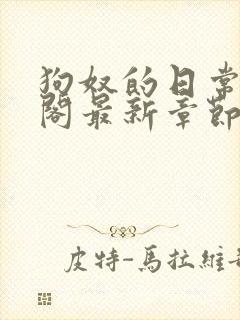 狗奴的日常
閣最新章節
皮特-馬拉維